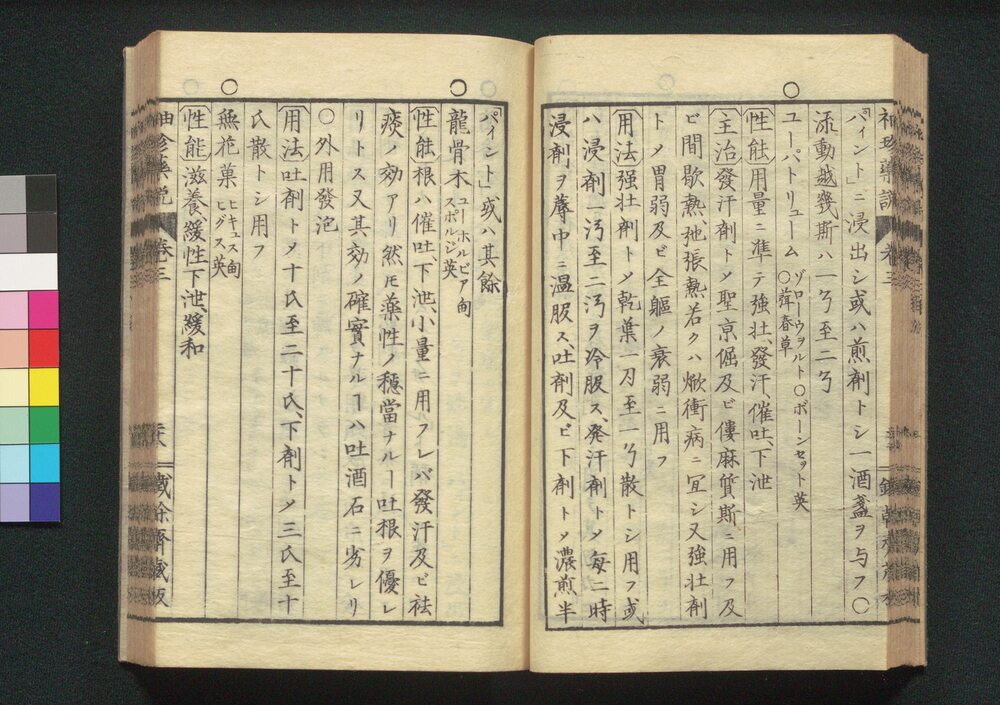 「パイント」ニ浸出シ或ハ煎剤トシ一酒盞ヲ与フ○
添動越幾斯ハ一弓至二弓
ユーパトリューム ゾローウヲルト○ボーンセット英
○蕣春草
性能 用量ニ準テ強壮、發汗、催吐、下泄
主治 發汗剤トメ聖京倔及ビ僂麻質斯ニ用フ及
ビ間歇熱弛張熱若クハ焮衝病ニ宜シ又強壮剤
トメ胃弱及ビ全軀ノ衰弱ニ用フ
用法 强壮剤トメ乾葉一刀至一弓散トシ用フ或
ハ浸剤一㕮至二㕮ヲ冷服ス、発汗剤トメ毎二時
浸剤ヲ蓐中ニ温服ス、吐剤及ビ下剤トメ濃煎半
「パイント」或ハ其餘
龍骨木 ユーホルビア甸
スポルジ英
性能 根ハ催吐、下泄、小量ニ用フレバ發汗及ビ祛
痰ノ効アリ然ㇳモ薬性ノ穏當ナルヿ吐根ヲ優レ
リトス又其効ノ確實ナルヿハ吐酒石ニ劣レリ
○外用發泡
用法 吐剤トメ十氏至二十氏、下剤トメ三氏至十
氏散トシ用フ
無花菓 ヒキュス甸
ヒグス英
性能 滋養、緩性下泄、緩和
袖珍藥説 卷三
蔵餘齋蔵板